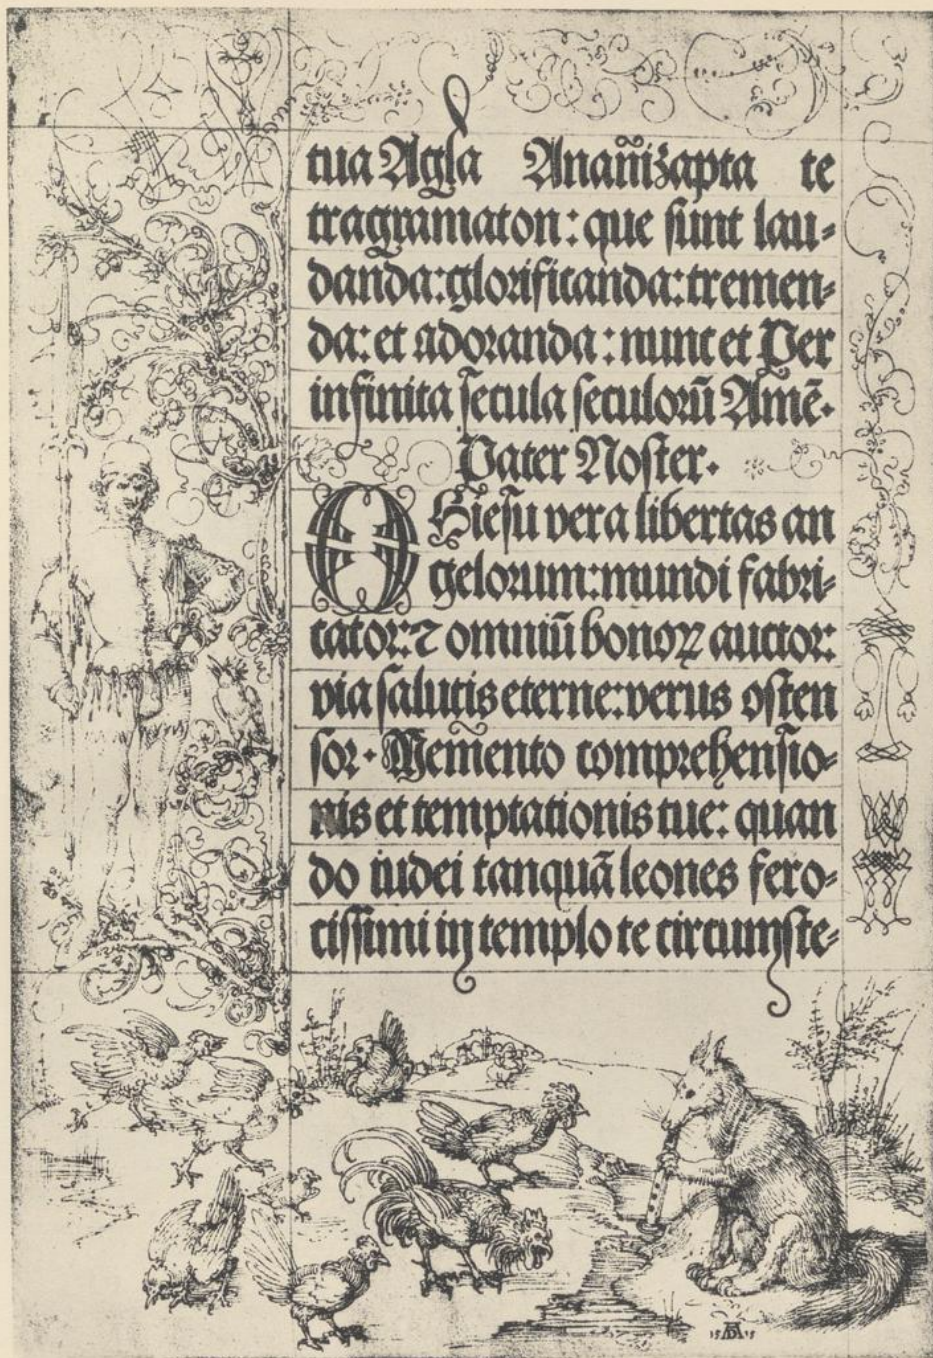 tua Agla Anañizapta te
tragramaton: que sunt lau-
danda: glorificanda: tremen-
da: et adoranda: nunc et Per
infinita secula seculorū Amē.
Pater Noster.
O Hiesu vera libertas an
gelorum: mundi fabri-
cator: ⁊ omniū bonoꝝ auctor:
via salutis eterne: verus osten
sor. Memento comprehensio-
nis et temptationis tue: quan
do iudei tanquā leones fero-
cissimi in templo te circumste-
15 AD 15